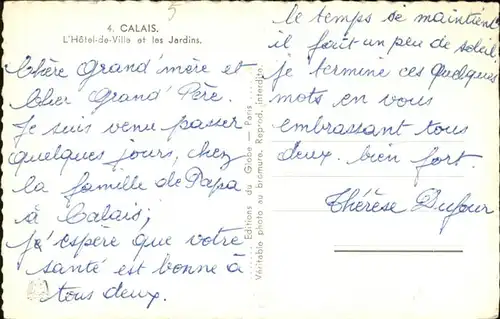 5
4. CALAIS.
L'Hôtel-de-Ville et les Jardins.
Chère Grand' mère et
Cher Grand' Père.
Je suis venu passer
quelques jours, chez
la famille de Papa
à Calais;
j'espère que votre
santé est bonne à
tous deux.
Editions du Globe. — Paris
Véritable photo au bromure. Reprod. interdite.
le temps se maintient
il fait un peu de soleil.
je termine ces quelques
mots en vous
embrassant tous
deux. bien fort.
Thérèse Dufour